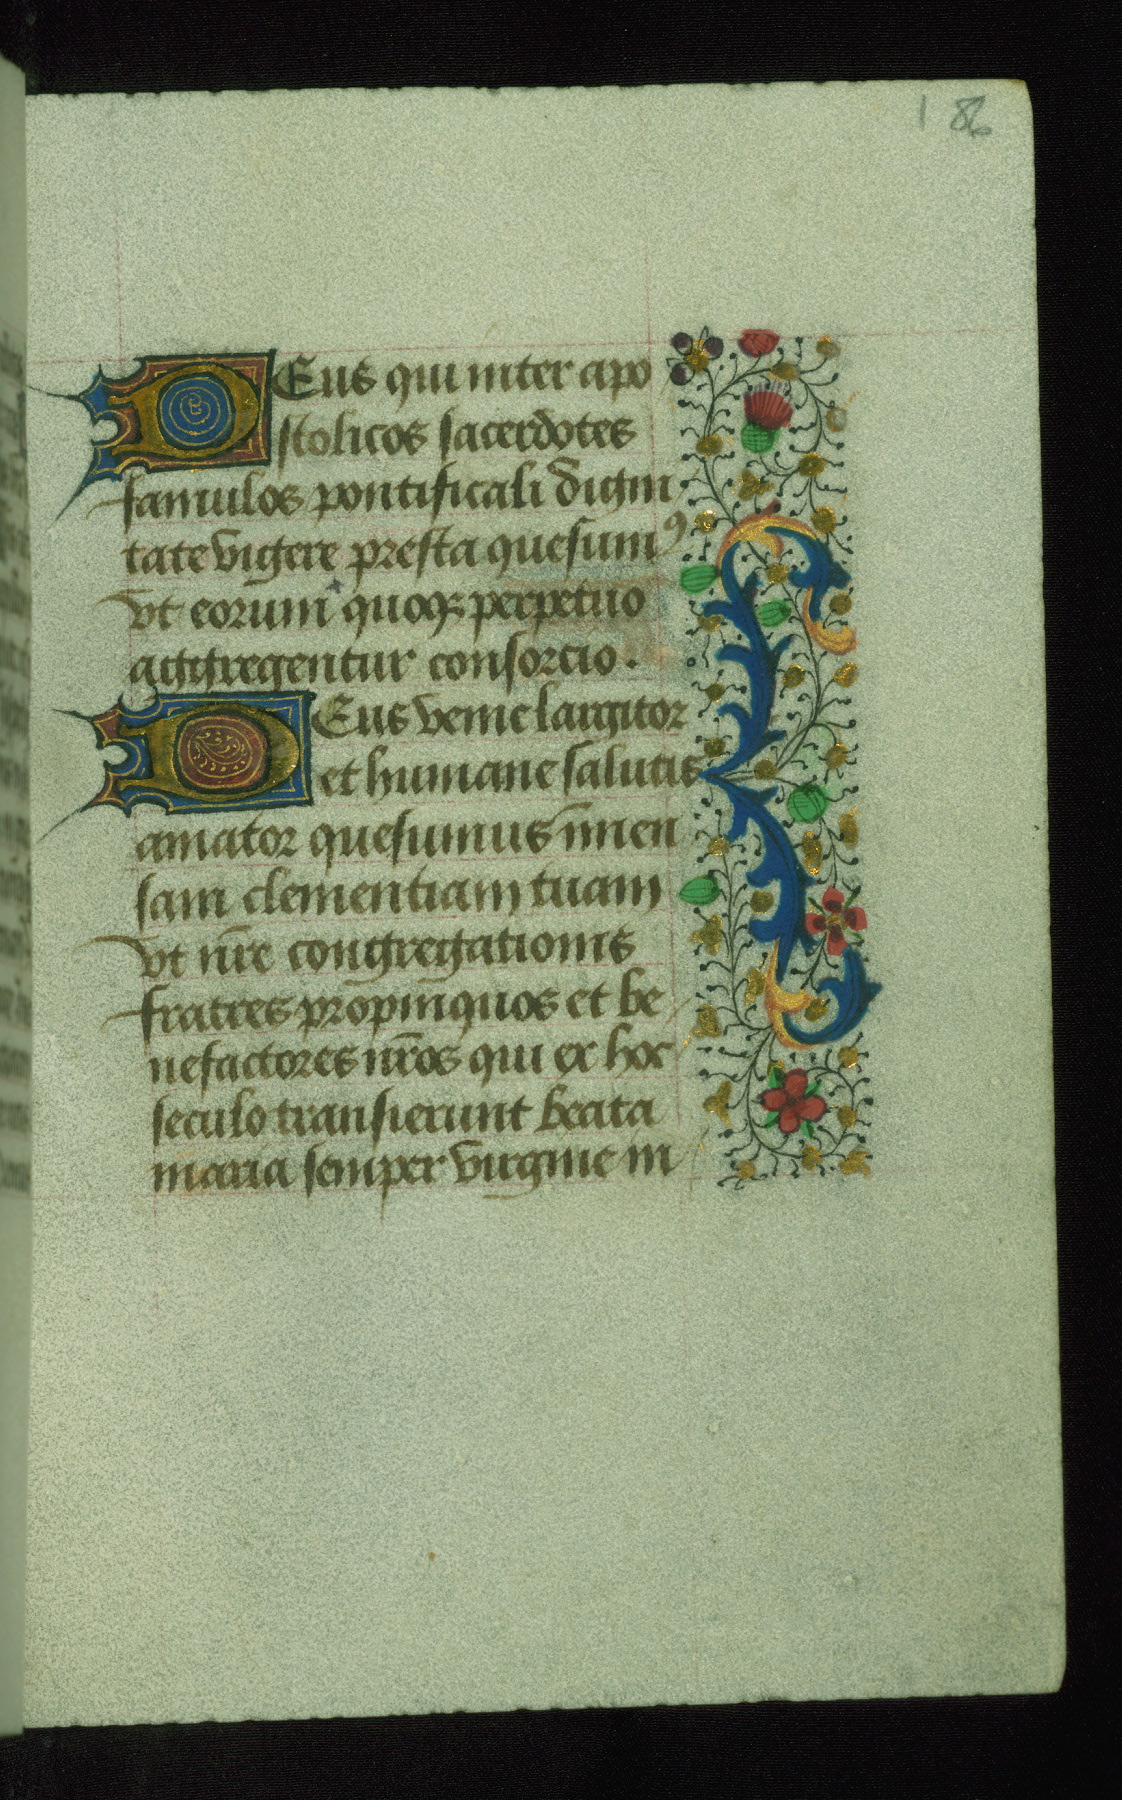 186
DEus qui inter apo
stolicos sacerdotes
famulos pontificali digni
tate vigere presta quesumꝰ
vt eorum quoqꝫ perpetuo
aggregentur consorcio.
DEus venie largitor
et humane salutis
amator quesumus im̄en
sam clementiam tuam
vt nr̄e congregationis
fratres propinquos et be
nefactores nr̄os qui ex hoc
seculo transierunt beata
maria semper virgine in